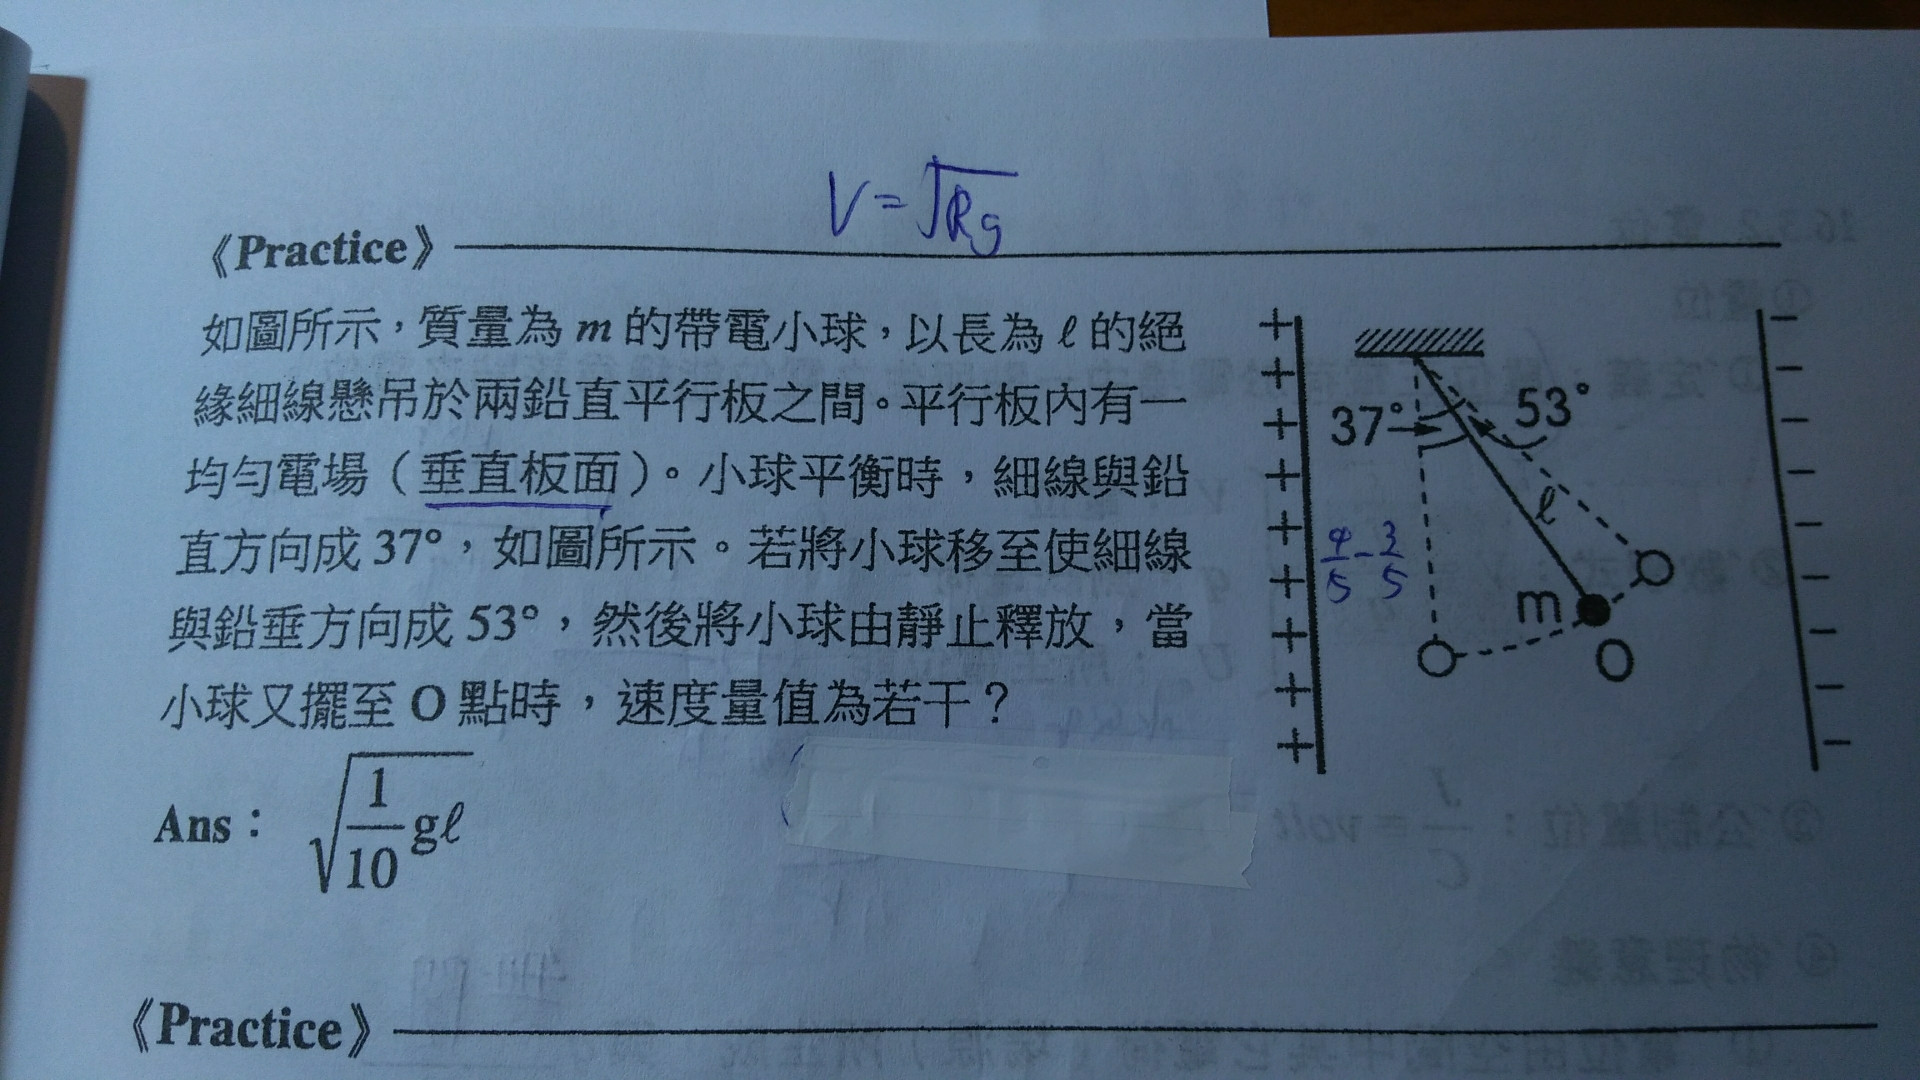 V=√Rg
《Practice》
如圖所示，質量為 m 的帶電小球，以長為 ℓ 的絕
緣細線懸吊於兩鉛直平行板之間。平行板內有一
均勻電場（垂直板面）。小球平衡時，細線與鉛
直方向成 37°，如圖所示。若將小球移至使細線
與鉛垂方向成 53°，然後將小球由靜止釋放，當
小球又擺至 O 點時，速度量值為若干？
Ans： √(1/10)gℓ
37° 53°
ℓ
4/5 - 3/5
m
O
《Practice》